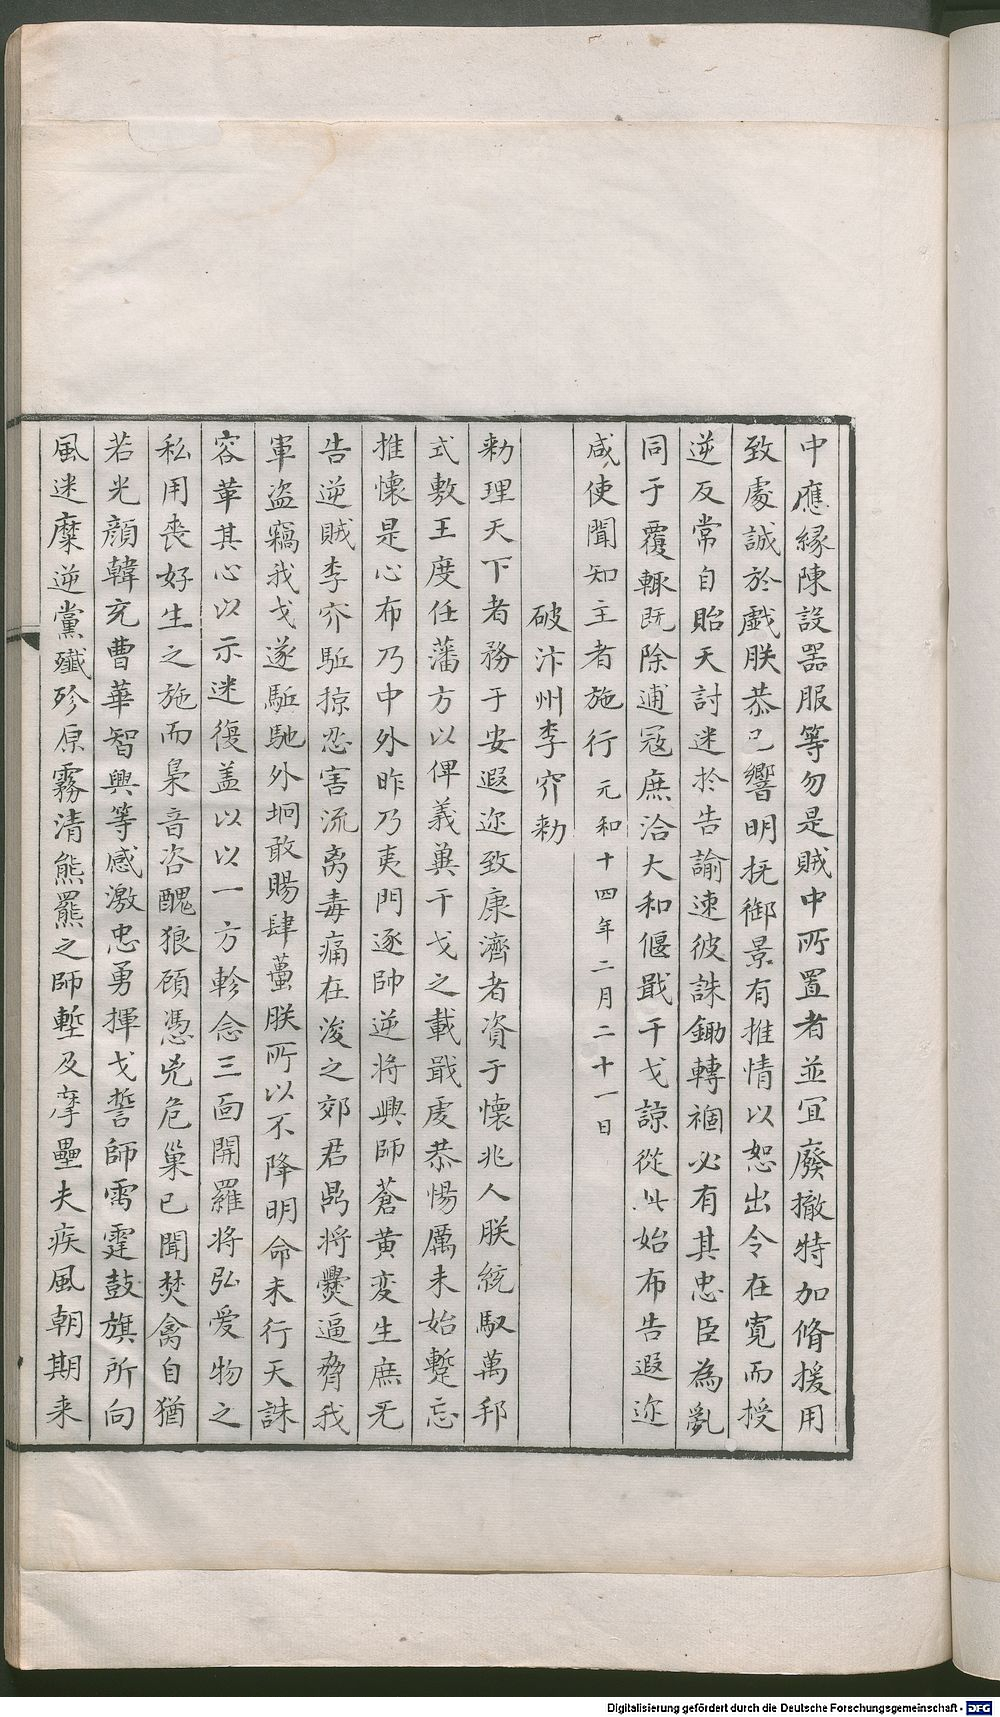 中應緣陳設器服等勿是賊中所置者並冝廢撤特加脩援用
致處誠於戲朕恭己響明抚御景有推情以恕出令在寛而授
逆反常自貽天討迷於告諭速彼誅鋤轉禍必有其忠臣為亂
同于覆輙既除逋冦庶洽大和偃戢干戈諒從此始布告遐迩
咸使聞知主者施行 元和十四年二月二十一日
破汴州李㝏勑
勑理天下者務于安遐迩致康濟者資于懷兆人朕統馭萬邦
式敷王度任藩方以俾義兾干戈之載戢虔恭惕厲未始蹔忘
推懷是心布乃中外昨乃夷門逐帥逆将興師蒼黄変生庶旡
告逆賊李㝏駈掠忍害流离毒痛在浚之郊君鼎将爨逼脅我
軍盗竊我戈遂駈馳外坰敢賜肆蠆朕所以不降明命未行天誅
容革其心以示迷復盖以以一方軫念三面開羅将弘爱物之
私用丧好生之施而梟音咨醜狼顧憑兇危巢已聞焚禽自猶
若光顔韓充曹華智興等感激忠勇揮戈誓師雷霆鼓旗所向
風迷糜逆黨殲殄原霧清熊羆之師塹及摩壘夫疾風朝期来
Digitalisierung gefördert durch die Deutsche Forschungsgemeinschaft - DFG